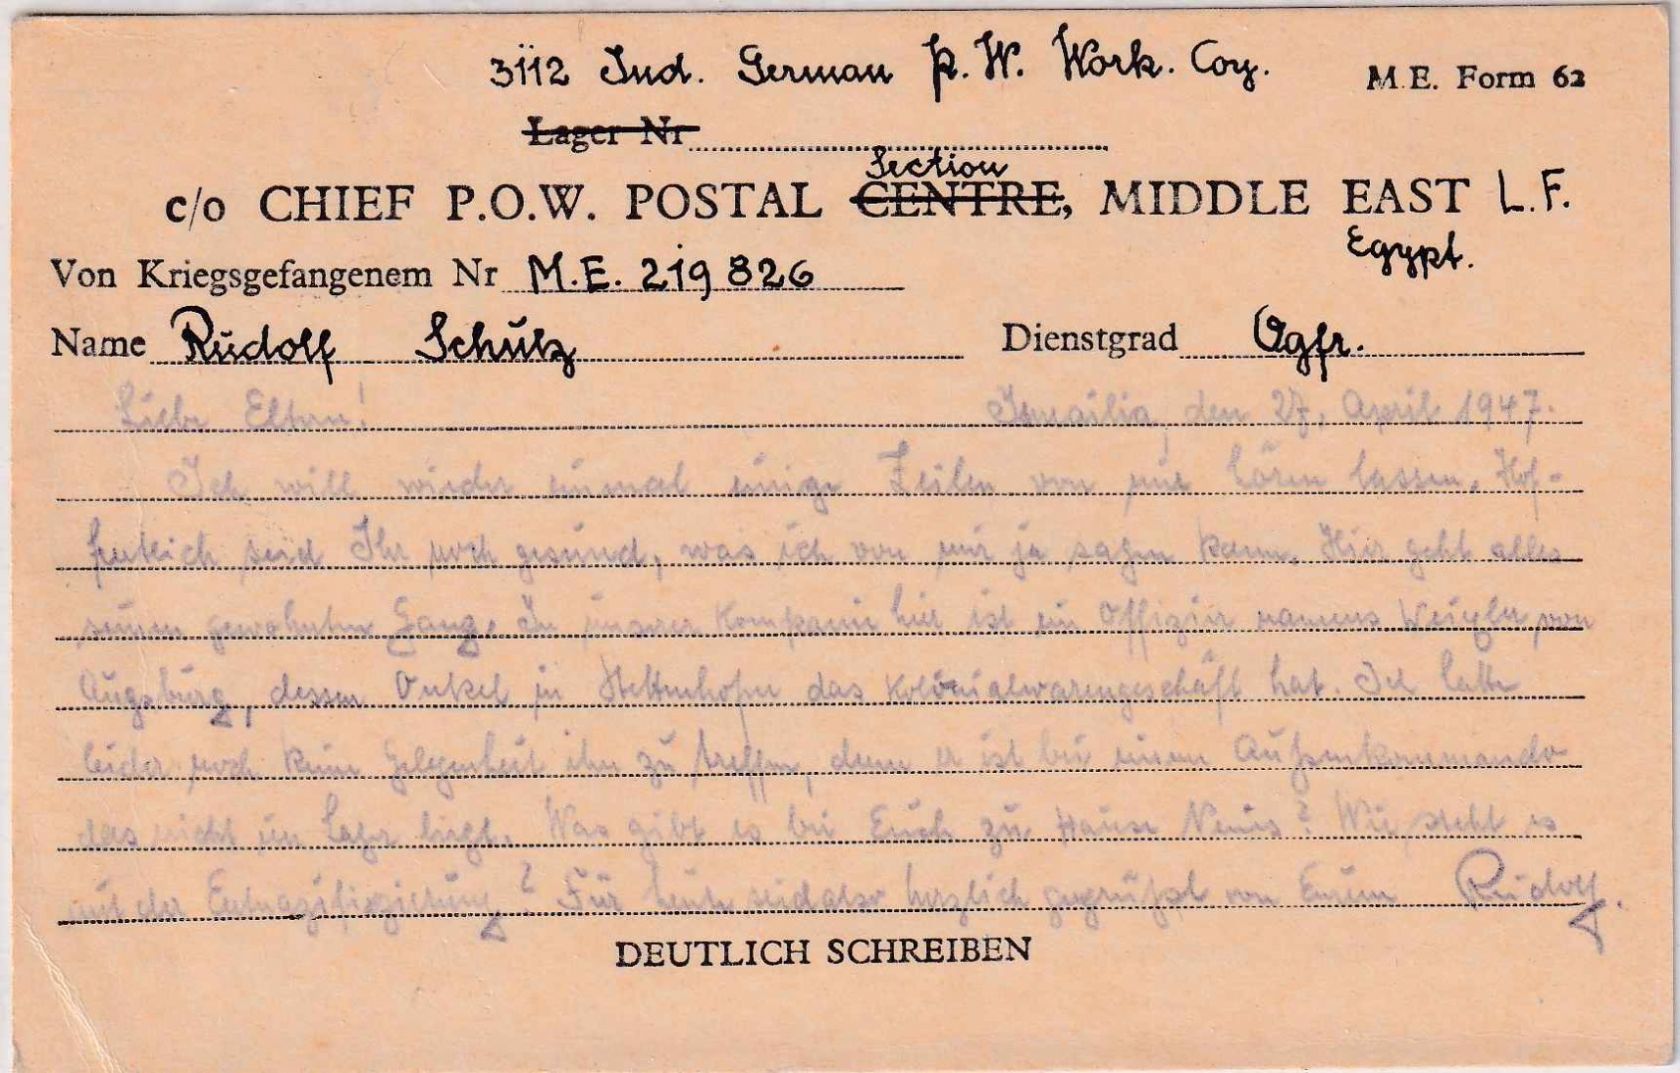 3112 Ind. German P.W. Work. Coy.
M.E. Form 62
Lager Nr
Section
c/o CHIEF P.O.W. POSTAL CENTRE, MIDDLE EAST L.F.
Egypt.
Von Kriegsgefangenem Nr M.E. 219826
Name Rudolf Schulz Dienstgrad Ogfr.
Liebe Eltern! Ismailia, den 27. April 1947.
Ich will wieder einmal einige Zeilen von mir hören lassen. Hof-
fentlich seid Ihr noch gesund, was ich von mir ja sagen kann. Hier geht alles
seinen gewohnten Gang. In unserer Kompanie hier ist ein Offizier namens von
Augsburg, dessen Onkel in Stettenhofen das Kolonialwarengeschäft hat. Ich hatte
leider noch keine Gelegenheit ihn zu treffen, denn er ist bei einem Außenkommando
das nicht im Lager liegt. Was gibt es bei Euch zu Hause Neues? Wie steht es
mit der Entnazifizierung? Für heute seid also herzlich gegrüßt von Eurem Rudolf.
DEUTLICH SCHREIBEN